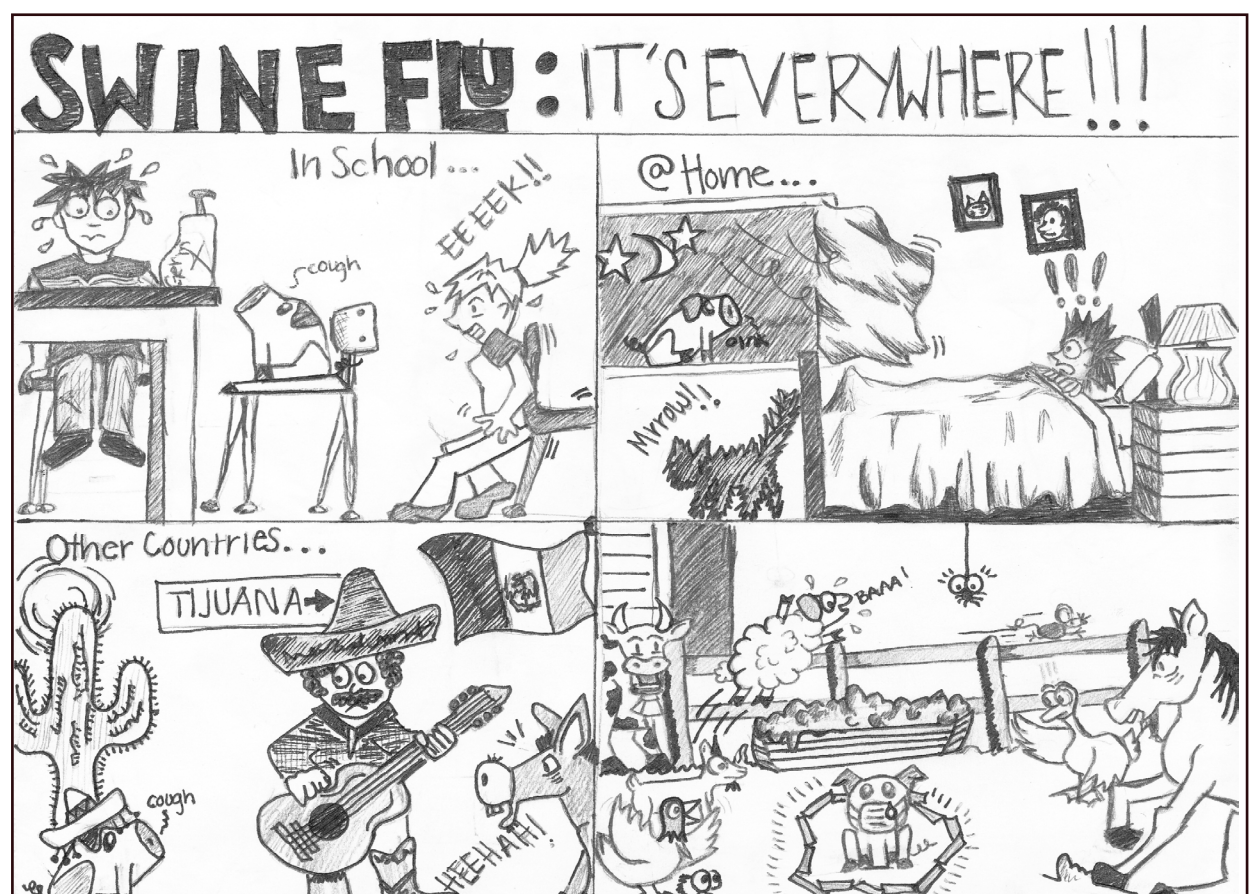 SWINE FLU: IT'S EVERYWHERE!!!
In School...
EEEEK!!
cough
@ Home...
!!!
oink
Mrrow!!
Other Countries...
TIJUANA
cough
HEEHAH!
BAAA!